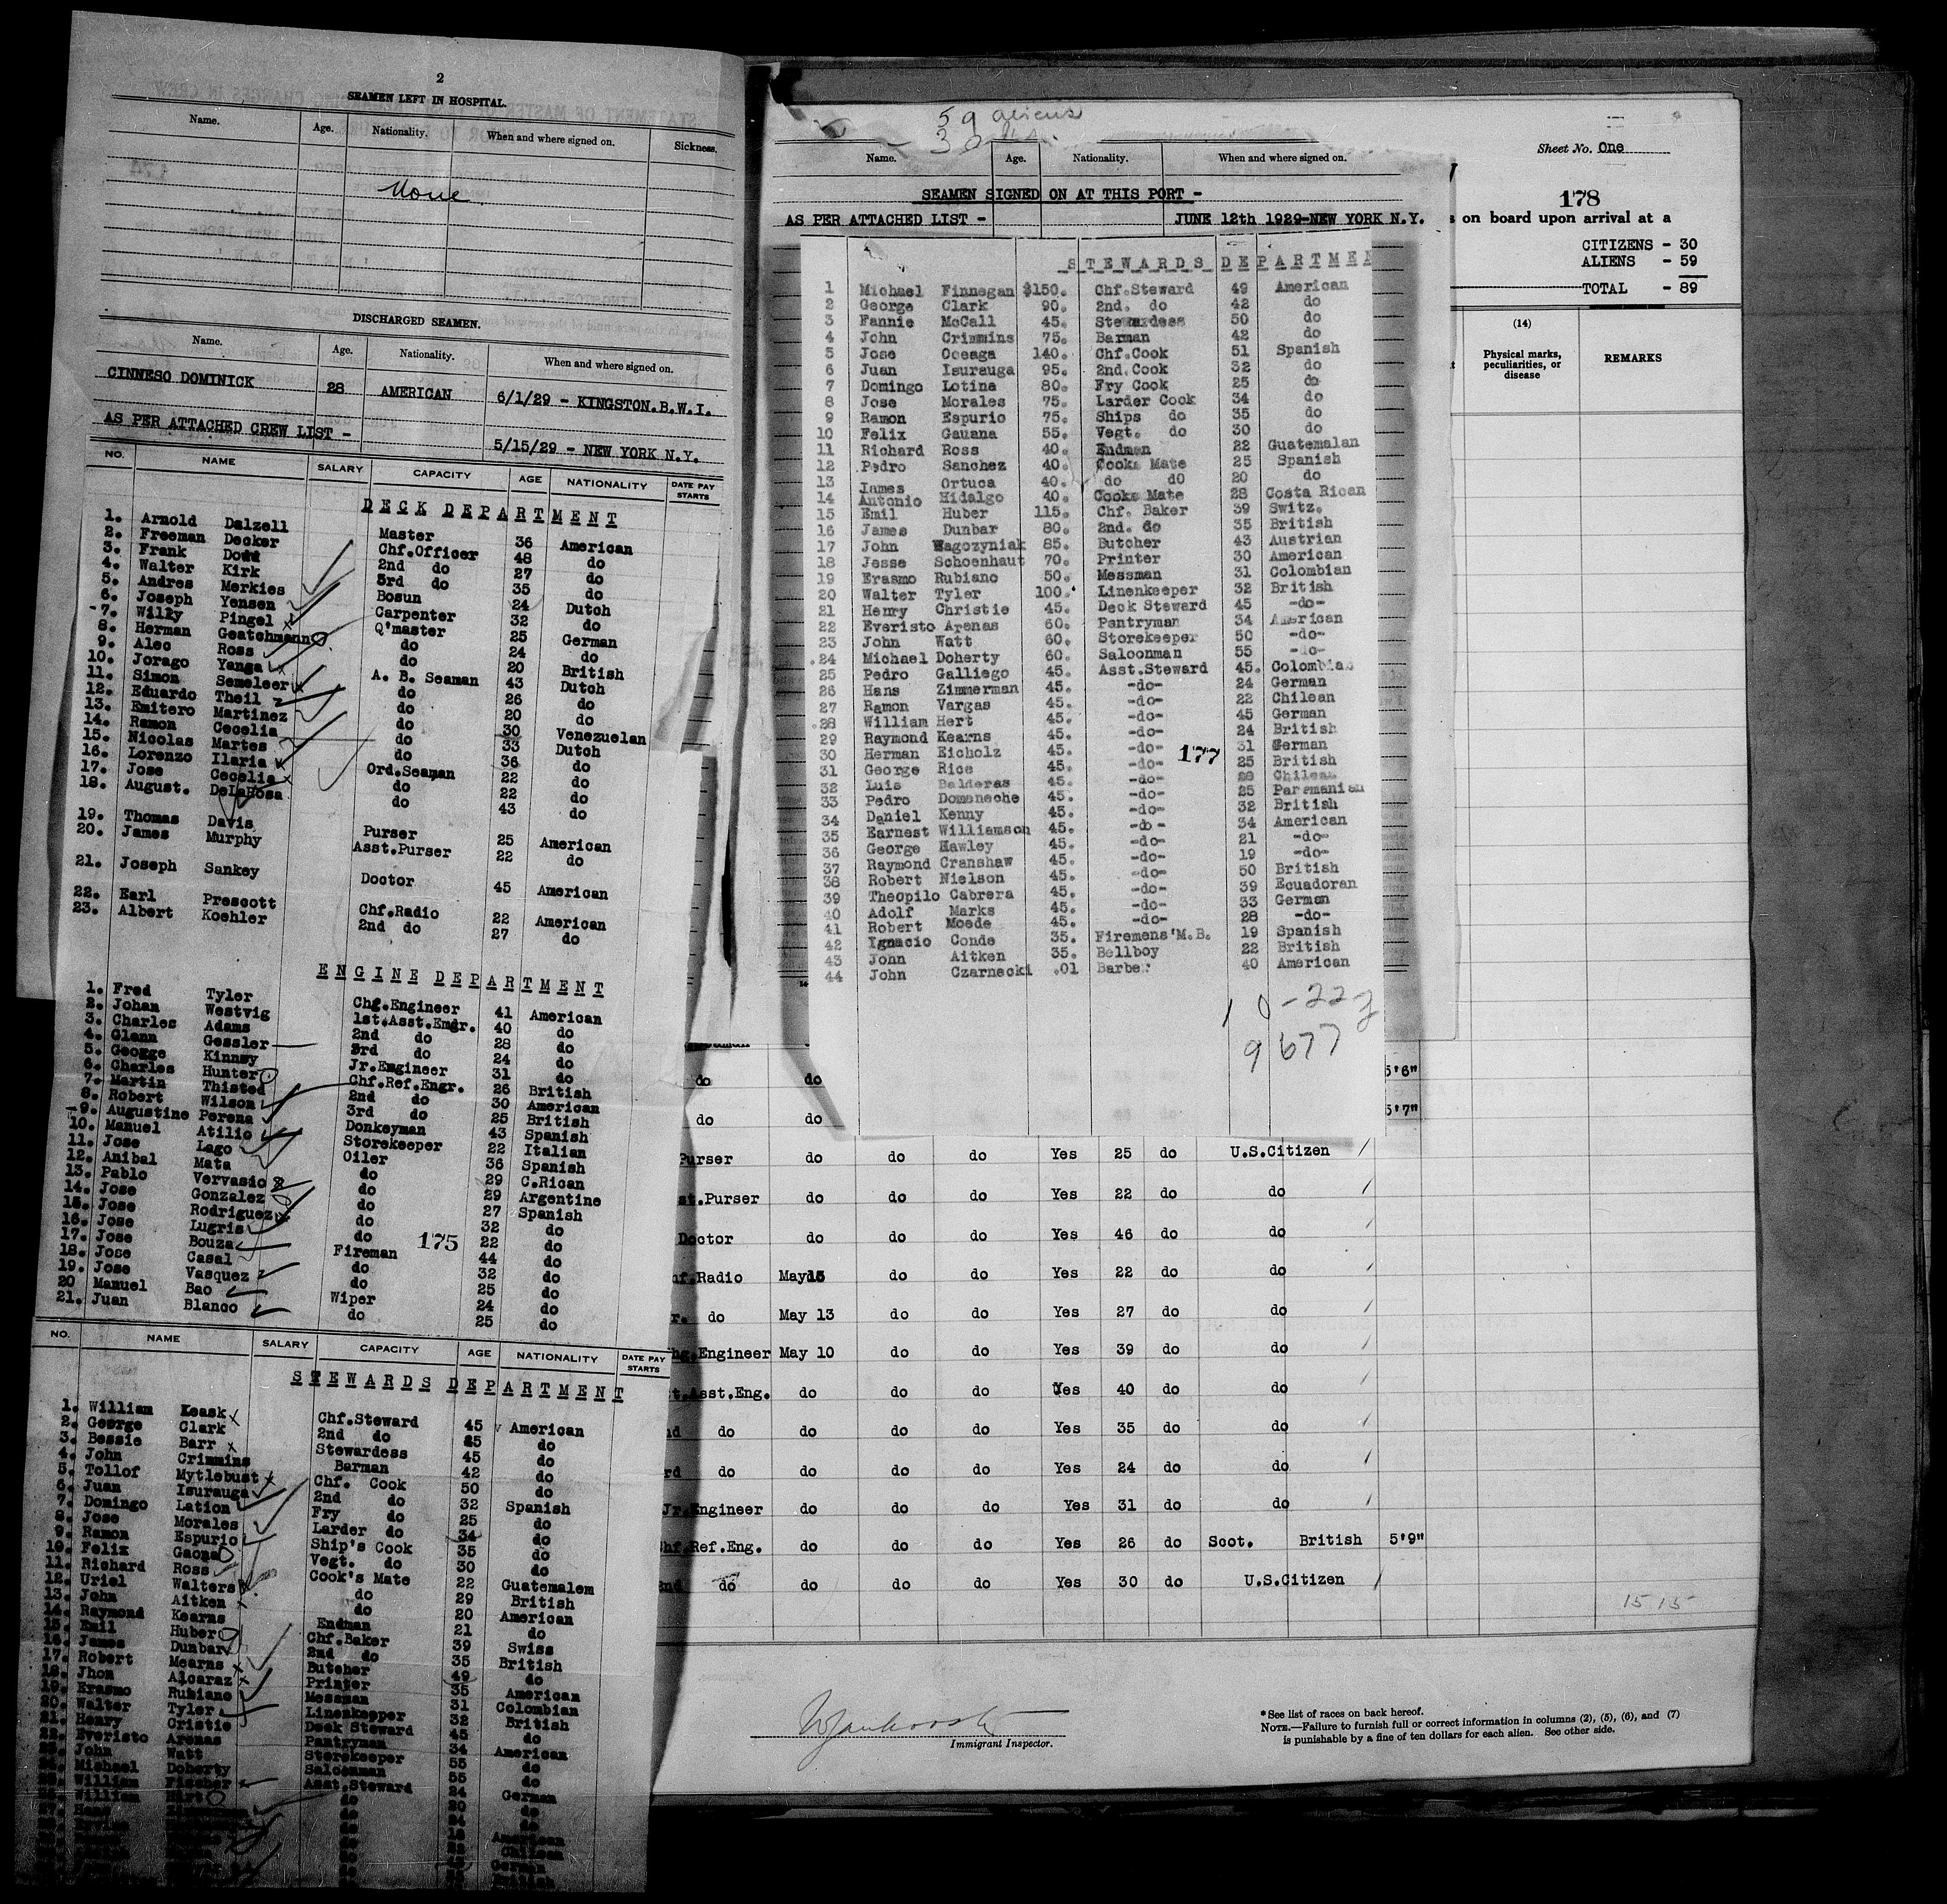 2
SEAMEN LEFT IN HOSPITAL.
Name. Age. Nationality. When and where signed on. Sickness.
None
DISCHARGED SEAMEN.
Name. Age. Nationality. When and where signed on.
CINNESO DOMINICK 28 AMERICAN 6/1/29 - KINGSTON.B.W.I.
AS PER ATTACHED CREW LIST - 5/15/29 - NEW YORK N.Y.
NO. NAME SALARY CAPACITY AGE NATIONALITY DATE PAY STARTS
DECK DEPARTMENT
1. Arnold Dalzell Master 36 American
2. Freeman Decker Chf.Officer 48 do
3. Frank 2nd do 27 do
4. Walter Kirk 3rd do 35 do
5. Andres Merkies Bosun 24 Dutch
6. Joseph Yensen Carpenter 32 do
-7. Willy Pingel Q'master 25 German
8. Herman Geatchmann do 24 do
9. Alec Ross do 20 British
10. Jorago Yanga A. B. Seaman 43 Dutch
11. Simon Semeleer do 26 do
12. Eduardo Theil do 20 do
13. Emitero Martinez do 30 Venezuelan
14. Ramon Cecelia do 33 Dutch
15. Nicolas Martes do 36 do
16. Lorenzo Ilaria Ord.Seaman 22 do
17. Jose Cecelia do 22 do
18. August. DeLaRosa do 43 do
19. Thomas Davis Purser 25 American
20. James Murphy Asst.Purser 22 do
21. Joseph Sankey Doctor 45 American
22. Earl Prescott Chf.Radio 22 American
23. Albert Koehler 2nd do 27 do
ENGINE DEPARTMENT
1. Fred Tyler Chg.Engineer 41 American
2. Johan Westvig 1st.Asst.Emgr. 40 do
3. Charles Adams 2nd do 28 do
4. Glenn Gessler 3rd do 24 do
5. George Kinney Jr.Emgineer 31 do
6. Charles Hunter Chf.Ref.Engr. 26 British
7. Martin Thisted 2nd do 30 American
8. Robert Wilson 3rd do 25 British
-9. Augustine Perena Donkeyman 43 Spanish
10. Manuel Atilio Storekeeper 22 Italian
11. Jose Lago Oiler 36 Spanish
12. Anibal Mata do 29 C.Rican
13. Pablo Vervasio do 29 Argentine
14. Jose Gonzalez do 27 Spanish
15. Jose Rodriguez do 32 do
16. Jose Lugris do 22 do
17. Jose Bouza Fireman 44 do
18. Jose Casal do 32 do
19. Jose Vasquez do 25 do
20 Manuel Bao Wiper 24 do
21. Juan Blanco do 25 do
175
NO. NAME SALARY CAPACITY AGE NATIONALITY DATE PAY STARTS
STEWARDS DEPARTMENT
1. William Keask Chf.Steward 45 American
2. George Clark 2nd do do
3. Bessie Barr Stewardess 45 do
4. John Crimmins Barman 42 do
5. Tollof Mytlebust Chf. Cook 50 do
6. Juan Isurauga 2nd do 32 Spanish
7. Domingo Lation Fry do 25 do
8. Jose Morales Larder do 34 do
9. Ramon Espurio Ship's Cook 35 do
10. Felix Gaona Vegt. do 30 do
11. Richard Ross Cook's Mate 22 Guatemalem
12. Uriel Walters do 29 British
13. John Aitken do 20 American
14. Raymond Kearns Endman 21 do
15. Emil Huber Chf.Baker 39 Swiss
16. James Dunbar 2nd do 35 British
17. Robert Mearns Butcher 49 do
18. Jhon Alcaraz Printer 35 American
19. Erasmo Rubiano Messman 31 Colombian
20. Walter Tyler Linenkeeper 32 British
21. Henry Cristie Deck Steward 45 do
22. Everisto Arenas Pantryman 34 American
23. John Watt Storekeeper 55 do
24. Michael Doherty Saloonman 55 do
25. William Fischer Asst.Steward 24 German
William Hirt do 20 do
59 aliens
30
Name. Age. Nationality. When and where signed on.
SEAMEN SIGNED ON AT THIS PORT -
AS PER ATTACHED LIST - JUNE 12th 1929-NEW YORK N.Y.
STEWARDS DEPARTMEN
1 Michael Finnegan $150. Chf.Steward 49 American
2 George Clark 90. 2nd. do 42 do
3 Fannie McCall 45. Stewardess 50 do
4 John Crimmins 75. Barman 42 do
5 Jose Oceaga 140. Chf.Cook 51 Spanish
6 Juan Isurauga 95. 2nd.Cook 32 do
7 Domingo Lotina 80. Fry Cook 25 do
8 Jose Morales 75. Larder Cook 34 do
9 Ramon Espurio 75. Ships do 35 do
10 Felix Gauana 55. Vegt. do 30 do
11 Richard Ross 40. Endman 22 Guatemalan
12 Pedro Sanchez 40. Cooks Mate 25 Spanish
13 James Ortuca 40. do do 20 do
14 Antonio Hidalgo 40. Cooks Mate 28 Costa Rican
15 Emil Huber 115. Chf. Baker 39 Switz.
16 James Dunbar 80. 2nd. do 35 British
17 John Wagozyniak 85. Butcher 43 Austrian
18 Jesse Schoenhaut 70. Printer 30 American
19 Erasmo Rubiano 50. Messman 31 Colombian
20 Walter Tyler 100. Linenkeeper 32 British
21 Henry Christie 45. Deck Steward 45 -do-
22 Everisto Arenas 60. Pantryman 34 American
23 John Watt 60. Storekeeper 50 -do-
.24 Michael Doherty 60. Saloonman 55 -do-
25 Pedro Galliego 45. Asst.Steward 45. Colombian
26 Hans Zimmerman 45. -do- 24 German
27 Ramon Vargas 45. -do- 22 Chilean
.28 William Hert 45. -do- 45 German
29 Raymond Kearns 45. -do- 24 British
30 Herman Eicholz 45. -do- 31 German
31 George Rice 45. -do- 25 British
32 Luis Balderas 45. -do- 28 Chilean
33 Pedro Domaneche 45. -do- 25 Panamanian
34 Daniel Kenny 45. -do- 32 British
35 Earnest Williamson 45. -do- 34 American
36 George Hawley 45. -do- 21 -do-
37 Raymond Cranshaw 45. -do- 19 -do-
38 Robert Nielson 45. -do- 50 British
39 Theopilo Cabrera 45. -do- 39 Ecuadoran
40 Adolf Marks 45. -do- 33 German
41 Robert Moede 45. -do- 28 -do-
42 Ygnacio Conde 35. Firemens'M.B. 19 Spanish
43 John Aitken 35. Bellboy 22 British
44 John Czarnecki .01 Barber 40 American
177
10-22
9677
Sheet No. One
178
s on board upon arrival at a
CITIZENS - 30
ALIENS - 59
TOTAL - 89
(14)
Physical marks, peculiarities, or disease
REMARKS
do do 5'6"
do do 5'7"
Purser do do do Yes 25 do U.S.Citizen
st.Purser do do do Yes 22 do do
Doctor do do do Yes 46 do do
hf.Radio May15 do do Yes 22 do do
r. do May 13 do do Yes 27 do do
hg.Engineer May 10 do do Yes 39 do do
t.Asst.Eng. do do do Yes 40 do do
nd do do do do Yes 35 do do
rd do do do do Yes 24 do do
Jr.Engineer do do do Yes 31 do do
hf.Ref.Eng. do do do Yes 26 do Scot. British 5'9"
2nd do do do do Yes 30 do U.S.Citizen
1515
Immigrant Inspector.
*See list of races on back hereof.
NOTE.—Failure to furnish full or correct information in columns (2), (5), (6), and (7)
is punishable by a fine of ten dollars for each alien. See other side.